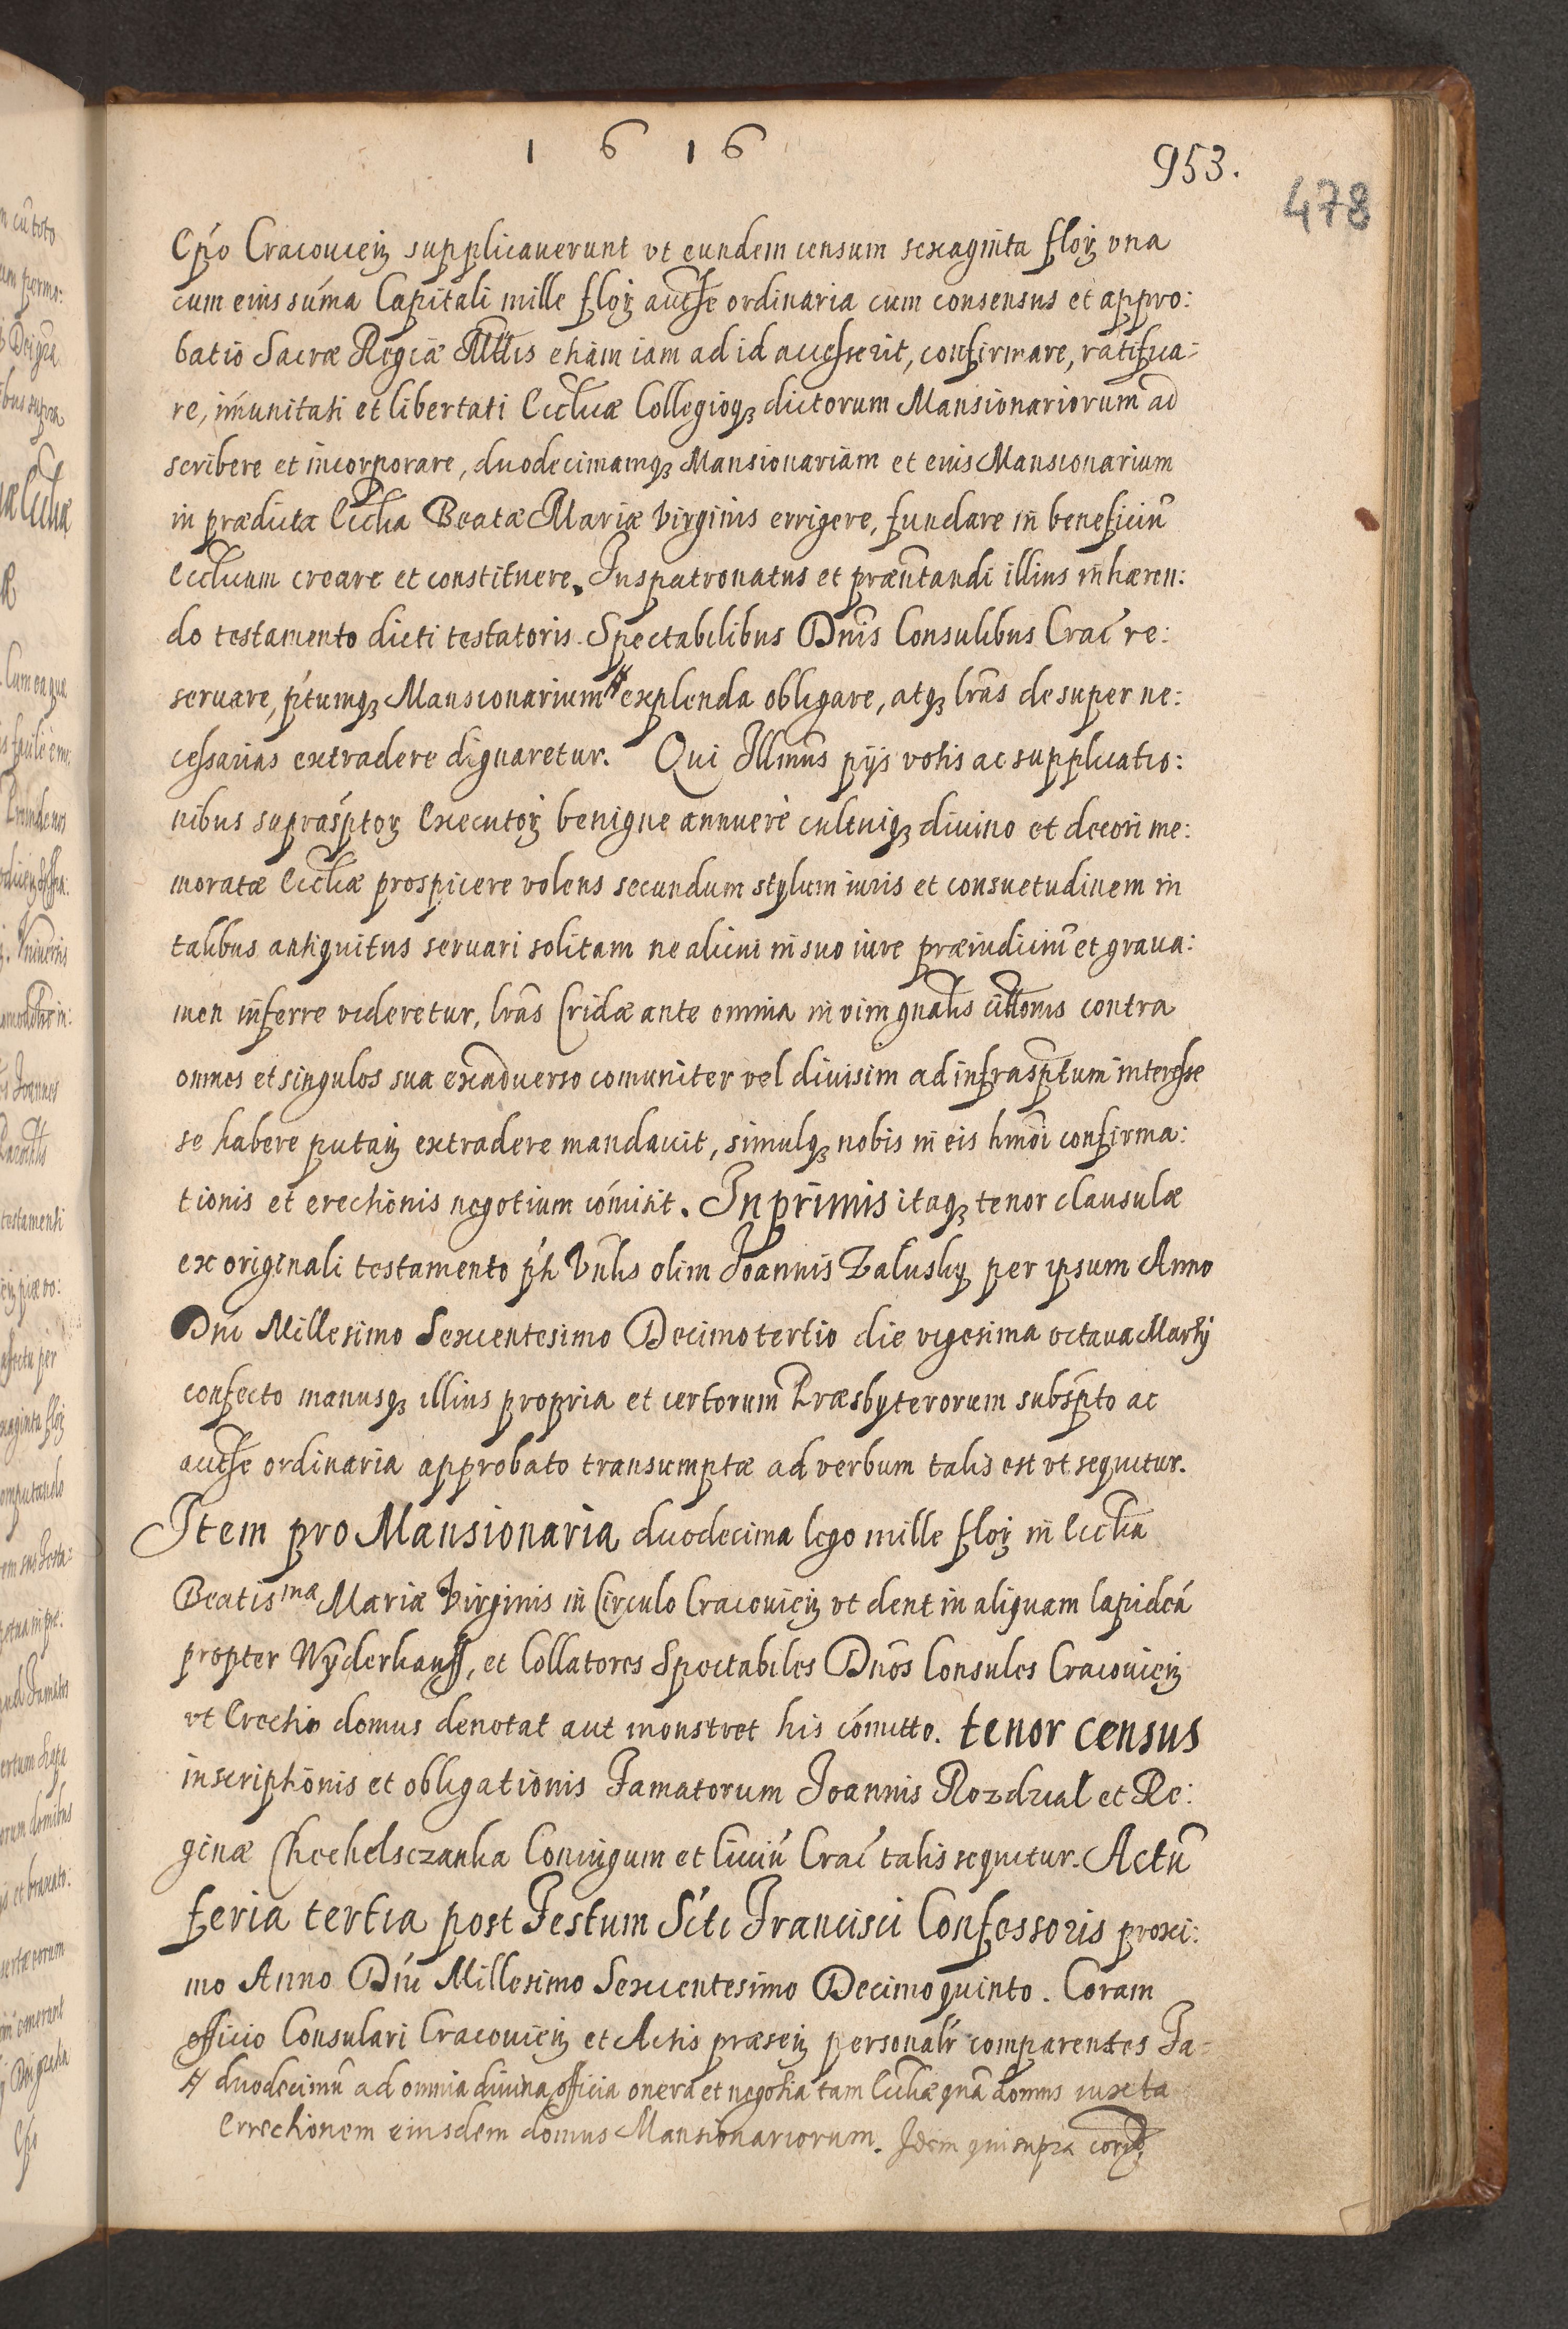 1 6 1 6
953.
478
Epo Cracovien supplicaverunt vt eundem censum sexaginta flor vna
cum eius suma Capitali mille flor aucthe ordinaria cum consensus et appro:
batio Sacræ Regiæ Mttis etiam iam ad id accesserit, confirmare, ratifica:
re, imunitati et libertati Ecclicæ Collegioq dictorum Mansionariorum ad
scribere et incorporare, duodecimamq Mansionariam et eius Mansionarium
in prædicta Ecclia Beatæ Mariæ Virginis errigere, fundare in beneficiu
Ecclicum creare et constituere. Iuspatronatus et præntandi illius inhæren:
do testamento dicti testatoris Spectabilibus Dnis Consulibus Crac re:
seruare, ptumq Mansionarium # explenda obligare, atq lras desuper ne:
cessarias extradere dignaretur. Qui Illmus pijs votis ac supplicatio:
nibus suprasptor Executor benigne annuere cultuiq diuino et decori me:
moratæ Eccliæ prospicere volens secundum stylum iuris et consuetudinem in
talibus antiquitus seruari solitam ne alicui in suo iure præiudiciu et graua:
men inferre videretur, lras Cridæ ante omnia in vim gnalis cittonis contra
omnes et singulos sua exaduerso comuniter vel diuisim ad infrasptum interesse
se habere putan extradere mandauit, simulq nobis in eis hmoi confirma:
tionis et erectionis negotium comisit. In primis itaq tenor clausulæ
ex originali testamento pti Vnlis olim Joannis Zalusky per ipsum Anno
Dni Millesimo Sexcentesimo Decimotertio die vigesima octaua Martij
confecto manusq illius propria et certorum Præsbyterorum subspto ac
aucthe ordinaria approbato transumptæ ad verbum talis est vt sequitur.
Item pro Mansionaria duodecima lego mille flor in Ecclia
Beatisma Mariæ Virginis in Circulo Cracouien vt dent in aliquam lapidea
propter Wyderkauff, et Collatores Spectabiles Dnos Consules Cracouien
vt Erectio domus denotat aut monstret his comitto. tenor census
inscriptionis et obligationis Famatorum Joannis Rozdzial et Re:
ginæ Chechelsczanka Coniugum et Ciuiu Crac talis sequitur. Actu
feria tertia post Festum Scti Francisci Confessoris proxi:
mo Anno Dni Millesimo Sexcentesimo Decimoquinto. Coram
officio Consulari Cracouien et Actis præsen personalr comparentes Fa=
# duodecimu ad omnia diuina officia onera et negotia tam Eccliæ qua domus iuxta
Errectionem eiusdem domus Mansionariorum. Idem qui supra